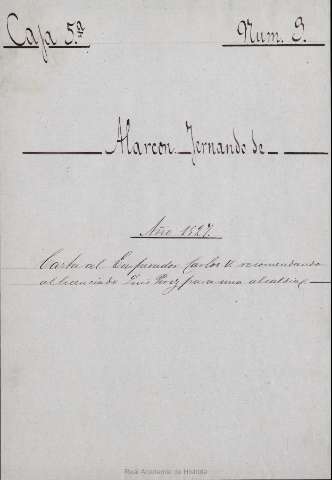 Caja 5.ª
Num. 3.
Alarcon Fernando de
Año 1527.
Carta al Emperador Carlos V. recomendando
al licenciado Luis Perez para una alcaldia
Real Academia de Historia